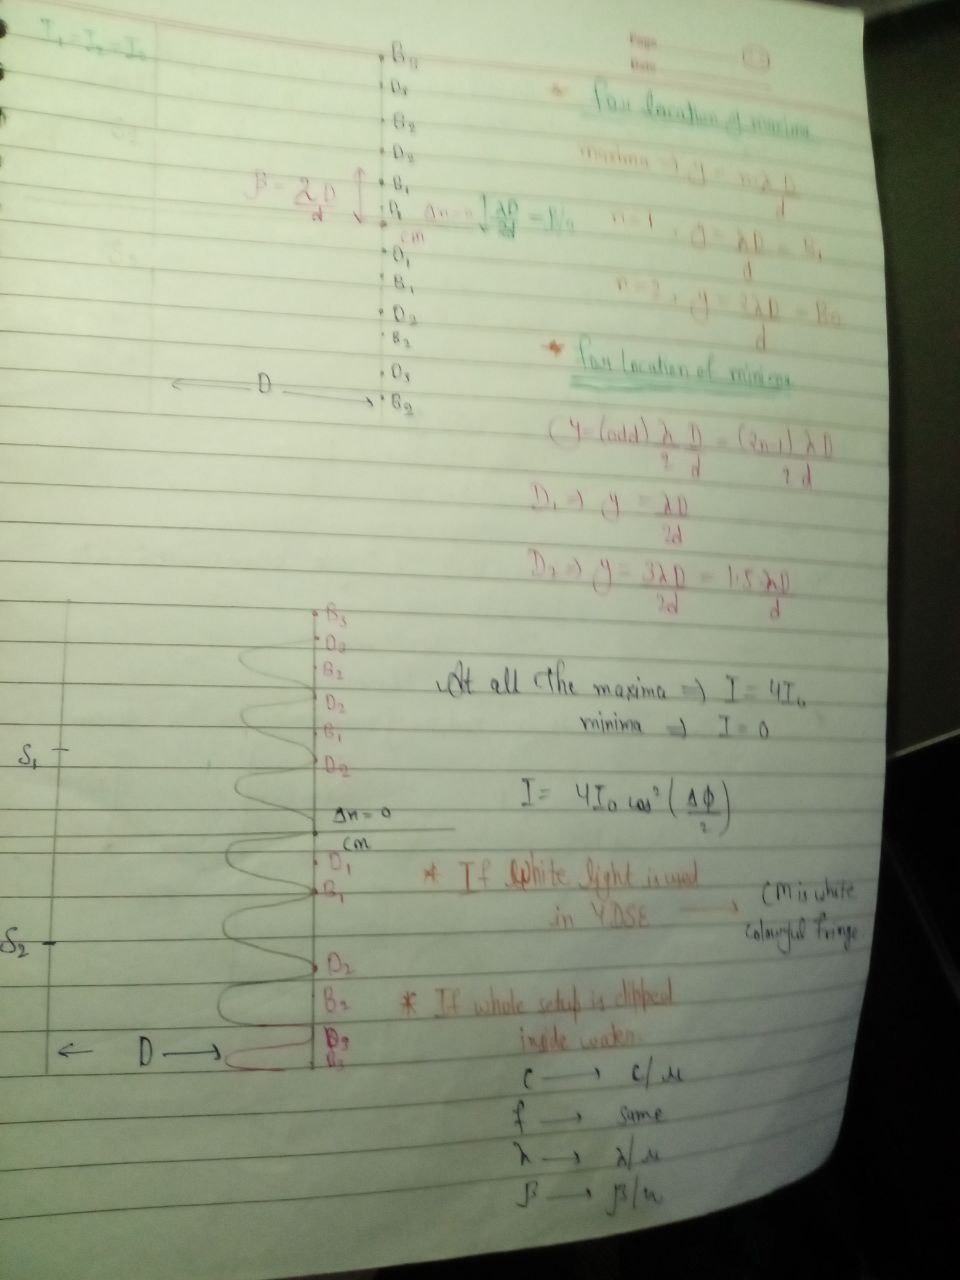 I₁ = I₂ = I₀
Page
Date
B₃
D₃
B₂
D₂
B₁
D₁
β = λD/d
Δx=0
λD/2d = β/2
CM
D₁
B₁
D₂
B₂
D₃
B₂
D
* for location of maxima
maxima ⇒ y = nλD/d
n=1, y = λD/d = B₁
n=2, y = 2λD/d = B₂
* for location of minima
(y = (odd) λ/2 D/d = (2n-1) λD/2d
D₁ ⇒ y = λD/2d
D₂ ⇒ y = 3λD/2d = 1.5 λD/d
B₃
D₃
B₂
D₂
B₁
D₂
S₁
Δx = 0
CM
D₁
B₁
S₂
D₂
B₂
D₃
D
At all the maxima ⇒ I = 4I₀
minima ⇒ I = 0
I = 4I₀ cos² (Δϕ/2)
* If White light is used
in YDSE → CM is white
colourful fringe
* If whole setup is dipped
inside water.
c → c/μ
f → same
λ → λ/μ
β → β/μ